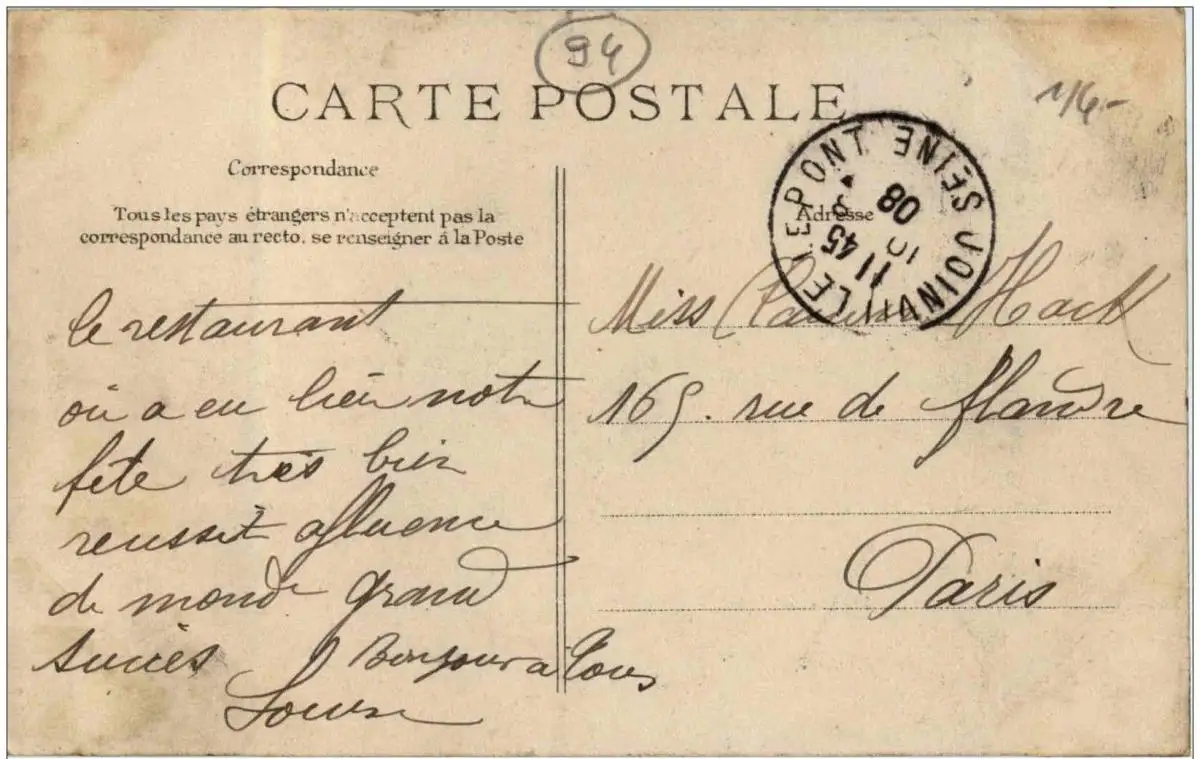 94
CARTE POSTALE
1/6-
Correspondance
Tous les pays étrangers n'acceptent pas la
correspondance au recto, se renseigner á la Poste
Adresse
JOINVILLE LE PONT SEINE
11 45
10 8
08
le restaurant
où a eu lieu notre
fête très bien
reussit affluence
de monde grand
succès Bonjour a tous
Louise
Miss Hack
165. rue de flandre
Paris